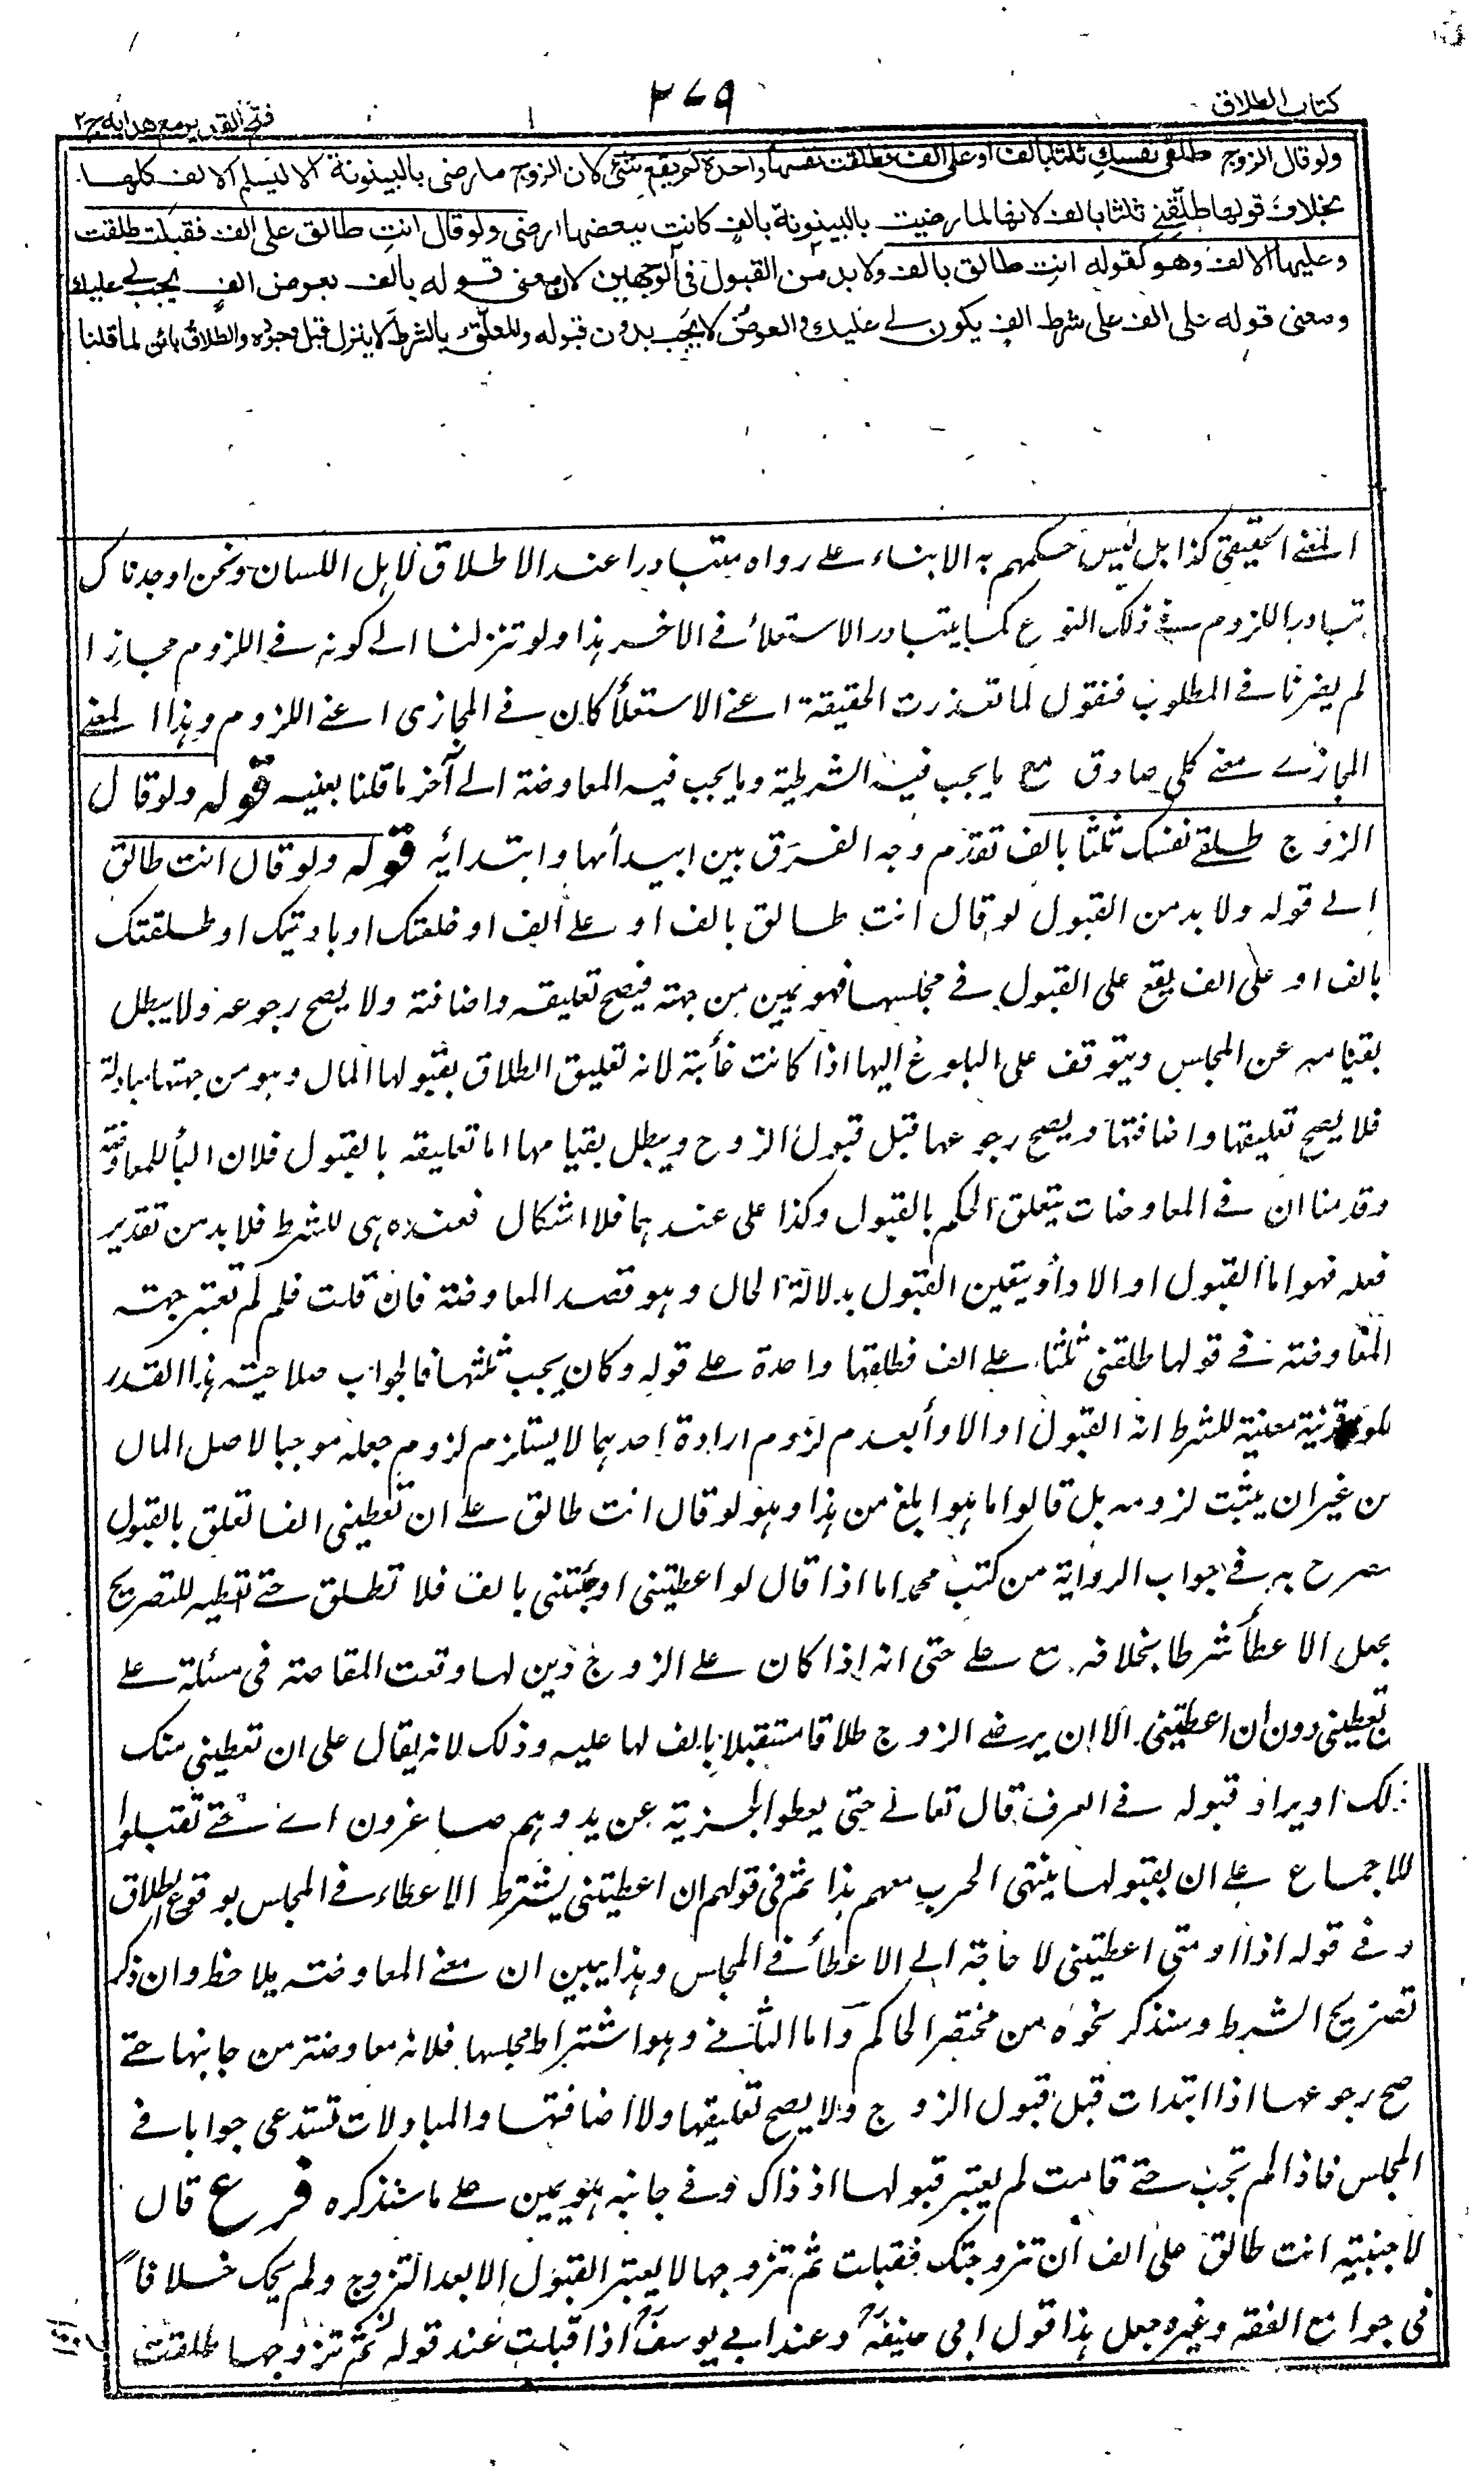 كتاب الطلاق
٢٧٩
فتح القدير مع هدايه ج ٢
ولو قال الزوج طلقي نفسكِ ثلثا بالف او على الف فطلقت نفسها واحدة لم يقع شئ لان الزوج ما رضى بالبينونة الا ليسلم الالف كلها
بخلاف قولها طلقني ثلثا بالف لانها لما رضيت بالبينونة بالفٍ كانت ببعضها ارضى ولو قال انتِ طالق على الف فقبلت طلقت
وعليها الالف وهو كقوله انتِ طالق بالف ولا بد من القبول فى الوجهين لان معنى قوله بالف بعوض الف يجب لي عليك
ومعنى قوله على الف على شرط الف يكون لي عليك والعوض لا يجب بدون قبوله والمعلق بالشرط لا ينزل قبل وجوده والطلاق بائن لما قلنا
المعنى الحقيقي كذا بل ليس حكمهم به الا بناء على رواه متبادرا عند الاطلاق لاهل اللسان ونحن اوجدناك
تبادر اللزوم في ذلك النوع كما يتبادر الاستعلاء في الآخر هذا ولو تنزلنا الى كونه في اللزوم مجازا
لم يضرنا في المطلوب فنقول لما تعذرت الحقيقة اعني الاستعلاء كان في المجازى اعني اللزوم وهذا المعنى
المجازي معنى كلي صادق مع ما يجب فيه الشرطية وما يجب فيه المعاوضة الى آخر ما قلنا بعينه قوله ولو قال
الزوج طلقي نفسك ثلثا بالف تقدم وجه الفرق بين ابتدائها وابتدائه قوله ولو قال انت طالق
الى قوله ولا بد من القبول لو قال انت طالق بالف او على الف او خلعتك او بارئتك او طلقتك
بالف او على الف يقع على القبول في مجلسها فهو يمين من جهته فيصح تعليقه واضافته ولا يصح رجوعه ولا يبطل
بقيامه عن المجلس ويتوقف على البلوغ اليها اذا كانت غائبة لانه تعليق الطلاق بقبولها المال وهو من جهتها مبادلة
فلا يصح تعليقها واضافتها ويصح رجوعها قبل قبول الزوج ويبطل بقيامها اما تعليقه بالقبول فلان الباء للمعاوضة
وقدمنا ان في المعاوضات يتعلق الحكم بالقبول وكذا على عندهما فلا اشكال فعنده هى للشرط فلا بد من تقدير
فعله فهو اما القبول او الاداء ويتعين القبول بدلالة الحال وهو قصد المعاوضة فان قلت فلم لم تعتبر جهته
المعاوضة في قولها طلقني ثلثا على الف فطلقها واحدة على قوله وكان يجب ثلثها فالجواب صلاحيته هذا القدر
لكونه قرينة معينة للشرط انه القبول او الاداء بعدم لزوم ارادة احدهما لا يستلزم لزوم جعله موجبا لاصل المال
من غير ان يثبت لزومه بل قالوا ما هو ابلغ من هذا وهو لو قال انت طالق على ان تعطيني الفا تعلق بالقبول
صرح به في جواب الرواية من كتب محمد اما اذا قال لو اعطيتني او جئتني بالف فلا تطلق حتى تعطيه للتصريح
بجعل الاعطاء شرطا بخلافه مع على حتى انه اذا كان على الزوج دين لها وقعت المقاصة في مسئلة على
تعطيني دون ان اعطيتني الا ان يرضى الزوج طلاقا مستقبلا بالف لها عليه وذلك لانه يقال على ان تعطيني منك
ذلك او يراد قبوله في العرف قال تعالى حتى يعطوا الجزية عن يد وهم صاغرون اي حتى تقبلوا
للاجماع على ان بقبولها ينتهى الحرب معهم هذا ثم في قولهم ان اعطيتني يشترط الاعطاء في المجلس بوقوع الطلاق
و في قوله اذا او متى اعطيتني لا حاجة الى الاعطاء في المجلس وهذا يبين ان معنى المعاوضة يلاحظ وان ذكر
تصريح الشرط وسنذكر نحوه من مختصر الحاكم واما الثاني وهو اشتراط مجلسها فلانه معاوضة من جانبها حتى
صح رجوعها اذا ابتدات قبل قبول الزوج ولا يصح تعليقها ولا اضافتها والمبادلات تستدعى جوابا في
المجلس فاذا لم تجب حتى قامت لم يعتبر قبولها اذ ذاك وفي جانبه هو يمين على ما سنذكره فرع قال
لاجنبية انت طالق على الف ان تزوجتك فقبلت ثم تزوجها لا يعتبر القبول الا بعد التزوج ولم يحك خلافا
في جوامع الفقه وغيره جعل هذا قول ابي حنيفة وعند ابي يوسف اذا قبلت عند قوله ثم تزوجها طلقت